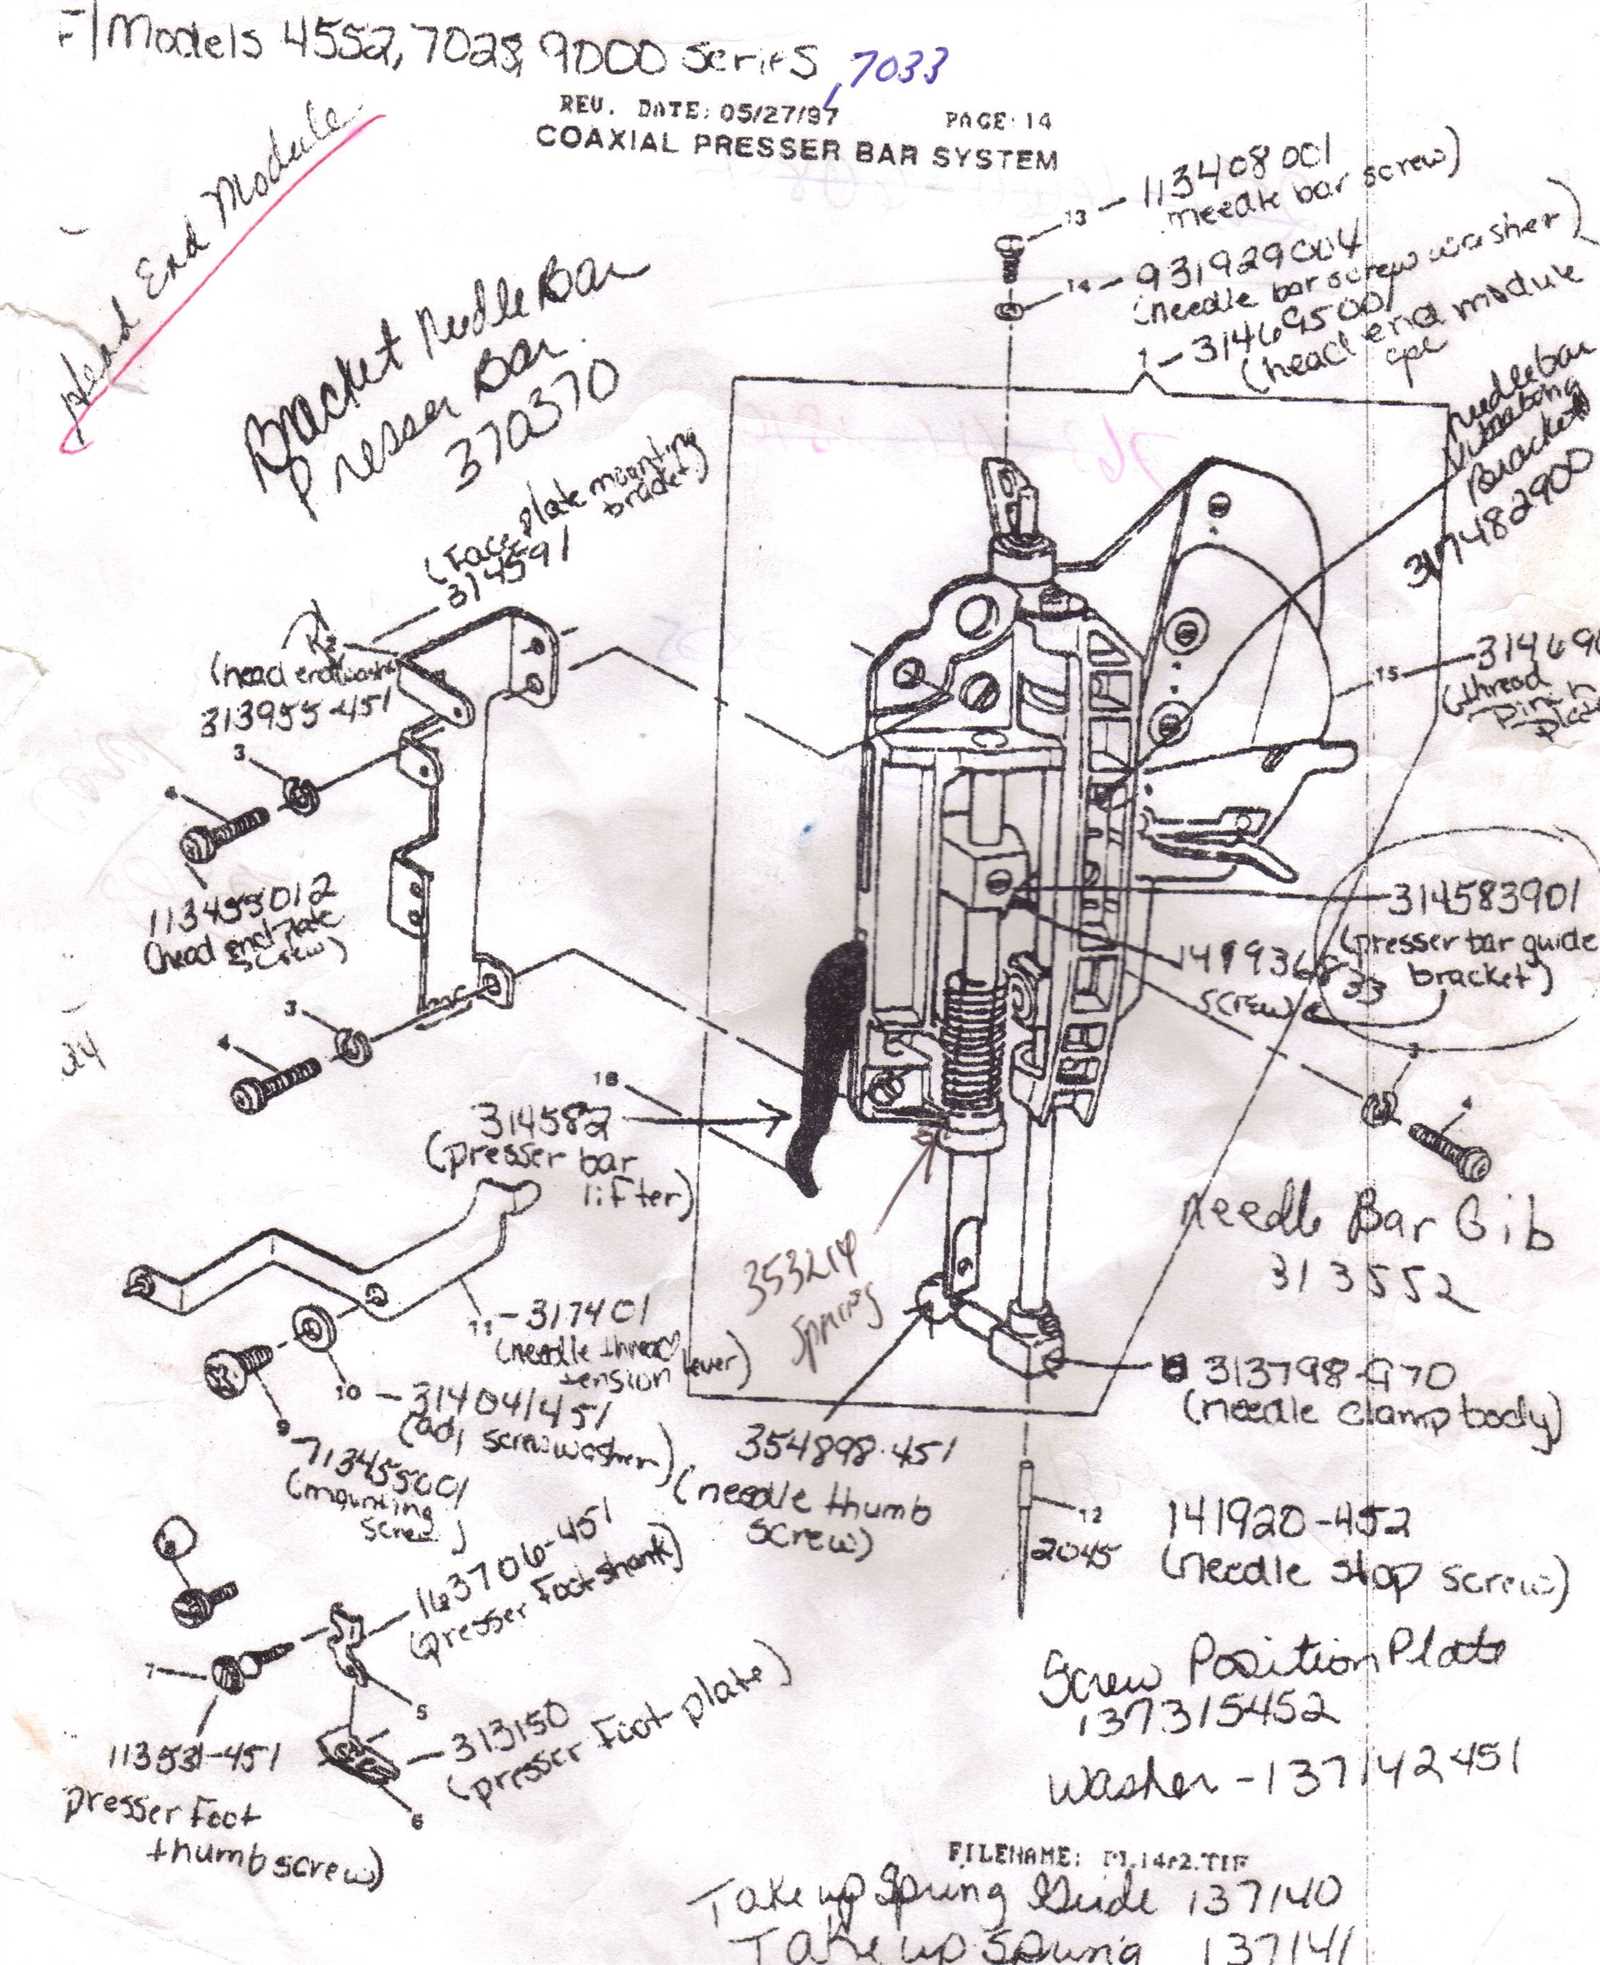 F/Models 4552, 7028, 9000 series, 7033
REV. DATE: 05/27/97 PAGE 14
COAXIAL PRESSER BAR SYSTEM
Head End Module
Bracket Needle Bar
Presser Bar.
370370
13 - 113408001
needle bar screw)
14 - 931929004
(needle bar screw washer)
1 - 314695001
(head end module
cpl
needle bar
Bracket
317482900
(Face plate mounting
bracket)
314591
(head end washer
313955-451
3
4
113455012
(head end plate
screw)
3
4
15 - 31469
(thread
pinch
plate
314583901
(presser bar guide
bracket)
1419368
33
screw)
3
4
18
314582
(presser bar
lifter)
Needle Bar Gib
313552
353214
spring
11 - 317401
(needle thread
tension lever)
10 - 314041451
(adj screw washer)
9
713455001
(mounting
screw)
313798-G70
(needle clamp body)
354898-451
(needle thumb
screw)
12
2045
141920-452
(needle stop screw)
163706-451
(presser foot shank)
7
5
313150
(presser foot plate)
6
113531-451
presser foot
thumb screw)
Screw Position Plate
137315452
Washer - 137142451
FILENAME:
Take up Spring Guide 137140
Take up Spring 137141